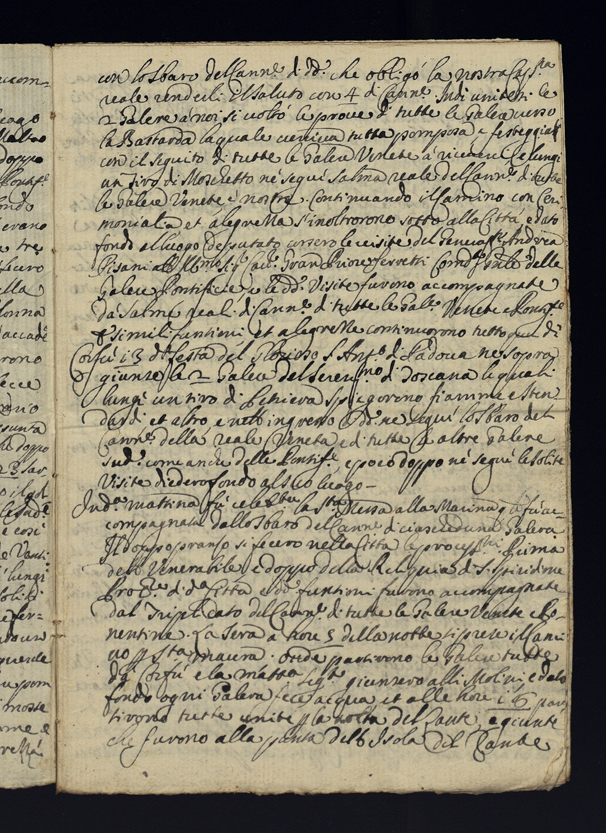 con lo Sbaro del Cann.e d. dd.e che obligó la nostra Cap.na
reale renderli il Saluto con 4 d Cann.e Indi unitesi le
2 Galere a noi si voltò le prove d tutte le Galere verso
la Bastarda la quale veniva tutta pomposa e festeggiat
con il seguito di tutte le Galere Venete á riceverci e lungi
un Tiro di Moschetto ne seguì Salma reale del Cann.e d. tutte
le Galere Venete e nostre. Continuando il Camino con Ceri
monialità et alegrezza s'inoltrorono sotto alla Città e dato
fondo al luogo desputato corsero le visite del General Andrea
Pisani all' Ill.mo Sig.r Cav. Gran Priore Ferretti Comd.e Gnle delle
Galere Pontificie e le dd.e Visite furono accompagnate
da Salme reali di Cann.e d tutte le Gale Venete e Pontif.e
E simili funtioni et alegrezze continuorono tutto quel dì
Corfù i3 d.o Festa del Glorioso S. Ant.o d Padova ne sopra
giunse le 2 Galere del Seren.mo d Toscana le quali
lungi un tiro di spiegorono fiamme e sten
dardi et altro e nell' ingresso d.o ne seguì lo Sbaro del
Cann.e della reale Veneta e di tutte l'altre Galere
sud.e come anche delle Pontif.e, e poco doppo né seguì le solite
Visite diedero fondo al suo luogo -
Ind.a mattina fù celebrta la S.ta Messa alla Marina q.a fù ac
compagnata dallo Sbaro del Cann.e d ciascheduna Galera
Il doppo pranso si fecero nella Città le process.ni Prima
del Venerabile e doppo della Reliquia di S. Spiridione
Prot.e d d.a Città e d.e funtioni furono accompagnate
dal Triplicato del Cann.e di tutte le Galere Venete e Po-
nentine. La Sera a hore 5 della notte si prese il Cami
no p S.ta Maura. Onde partirono le Galere tutte
da Corfù e la matta giunsero alli Molini e dato
fondo ogni Galera fece acqua et alle hore i6 par
tirono tutte unite p la volta del Zante, e giunte
che furono alla punta dell' Isola del Zante